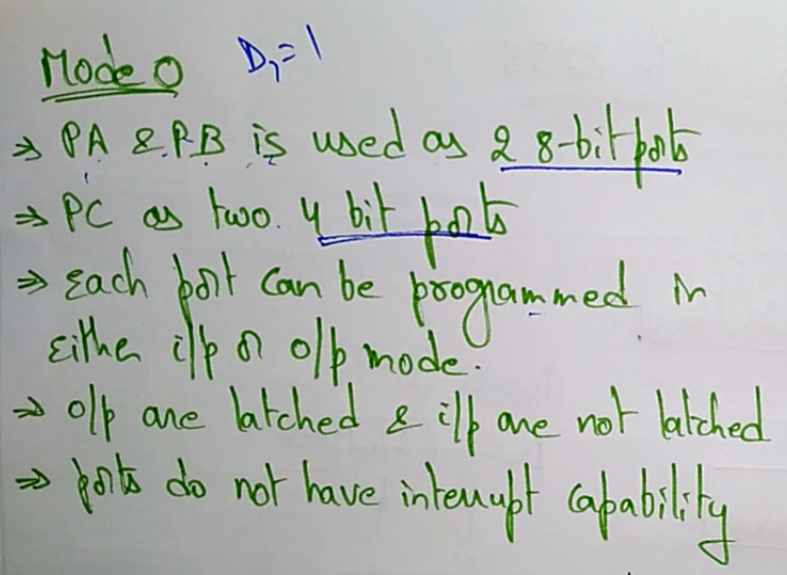 Mode 0 D7=1
⇒ PA & PB is used as 2 8-bit ports
⇒ PC as two 4 bit ports
⇒ Each port can be programmed in
either i/p or o/p mode.
⇒ o/p are latched & i/p are not latched
⇒ ports do not have interrupt capability